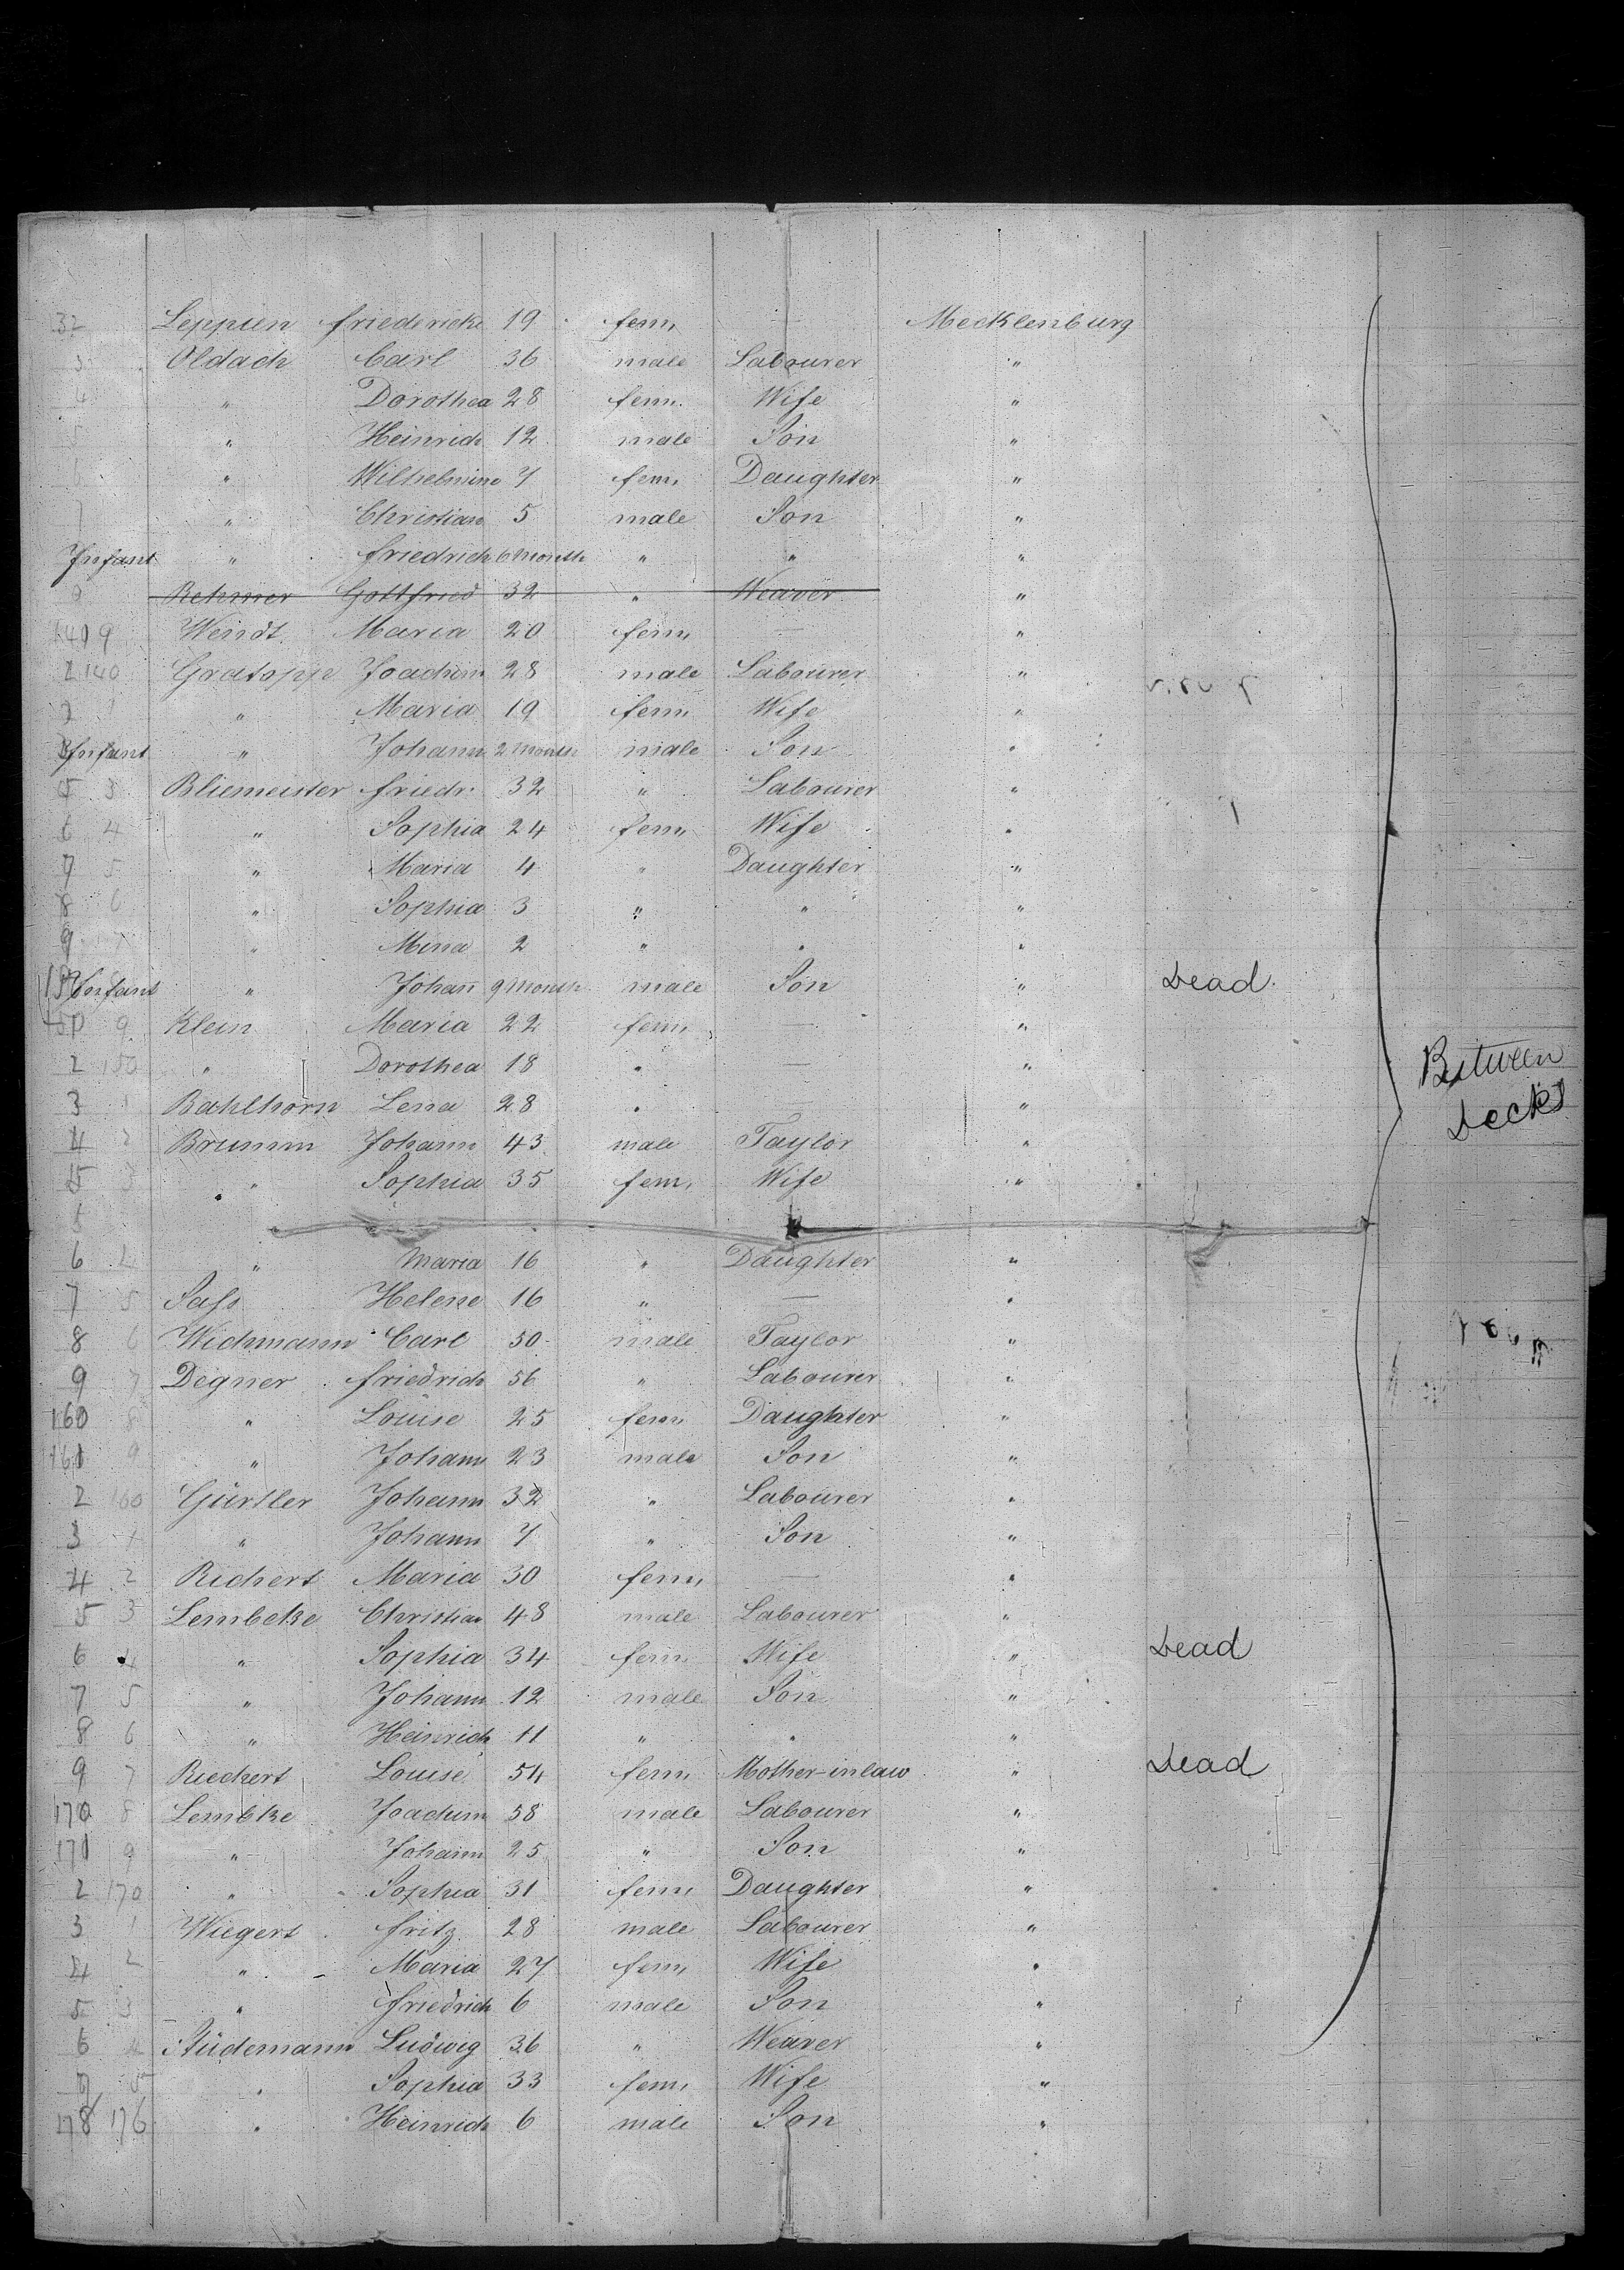 32 Leppien Friedericke 19 fem, Mecklenburg
3 Oldach Carl 36 male Labourer "
4 " Dorothea 28 fem. Wife "
5 " Heinrich 12 male Son "
6 " Wilhelmine 7 fem, Daughter "
7 " Christian 5 male Son "
Infant " Friedrich 6 month " " "
9 Rehmer Gottfried 32 " Weaver "
Wendt Maria 20 fem, — "
140 Gratopp Joachim 28 male Labourer "
" Maria 19 fem, Wife "
Infant " Johann 2 month male Son "
5 3 Bliemeister Friedr. 32 " Labourer "
6 4 " Sophia 24 fem, Wife "
7 5 " Maria 4 " Daughter "
8 6 " Sophia 3 " " "
9 7 " Mina 2 " " "
Infant " Johan 9 month male Son " Dead
9 Klein Maria 22 fem, — "
2 150 " Dorothea 18 " — "
3 1 Bahlhorn Lena 28 " — "
4 2 Brumm Johann 43 male Taylor "
5 3 " Sophia 35 fem, Wife "
5
6 4 " Maria 16 " Daughter "
7 5 Sass Helene 16 " — "
8 6 Wichmann Carl 50 male Taylor "
9 7 Degner Friedrich 56 " Labourer "
160 8 " Louise 25 fem Daughter "
161 9 " Johann 23 male Son "
2 160 Gürtler Johann 32 " Labourer "
3 1 " Johann 7 " Son "
4 2 Richert Maria 30 fem, — "
5 3 Lembcke Christian 48 male Labourer "
6 4 " Sophia 34 fem, Wife " Dead
7 5 " Johann 12 male Son "
8 6 " Heinrich 11 " " "
9 7 Riechert Louise 54 fem, Mother-in law " Dead
170 8 Lembke Joachim 58 male Labourer "
171 9 " Johann 25 " Son "
2 170 " Sophia 31 fem, Daughter "
3 1 Wiegert Fritz 28 male Labourer "
4 2 " Maria 27 fem, Wife "
5 3 " Friedrich 6 male Son "
6 4 Stüdemann Ludwig 36 " Weaver "
7 5 " Sophia 33 fem, Wife "
178 176 " Heinrich 6 male Son "
Between
Decks